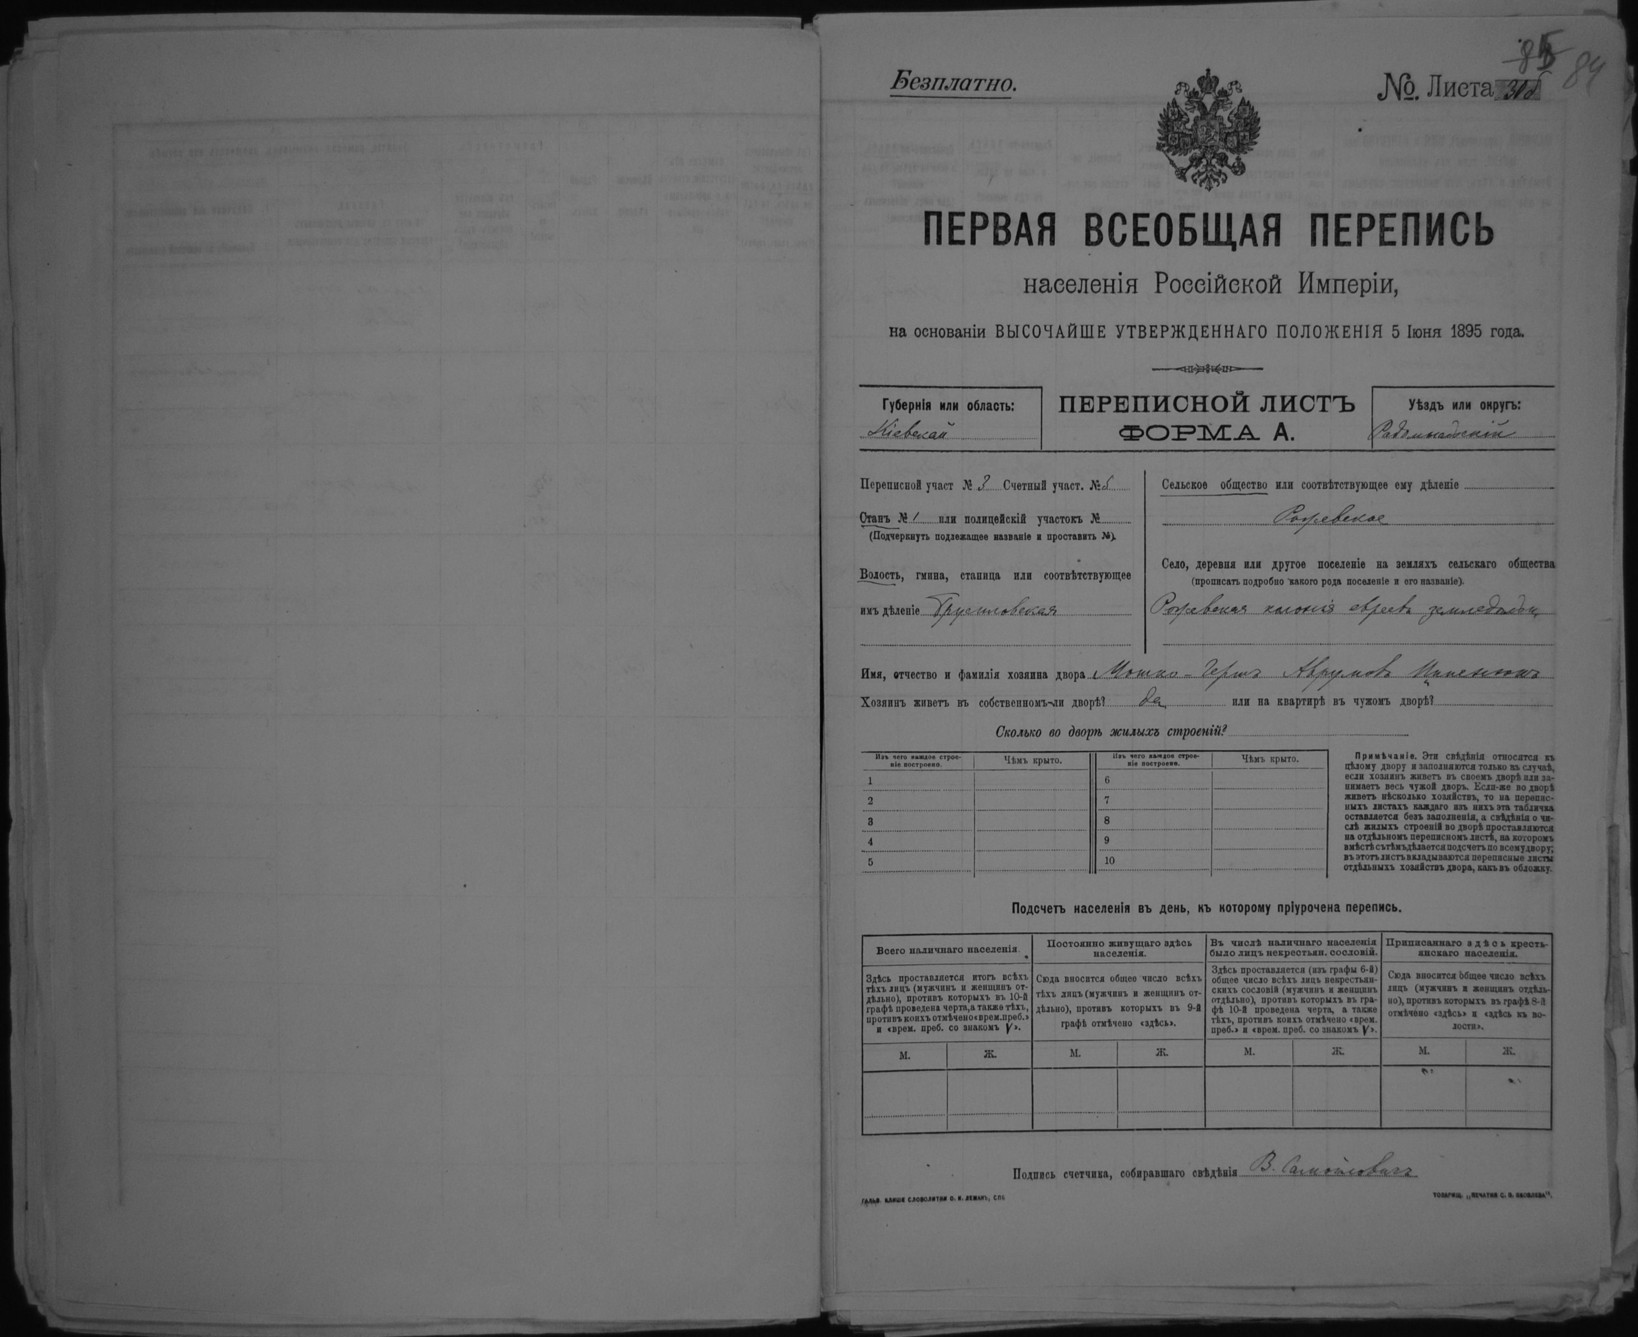 85 84
Безплатно.
№. Листа 31б
ПЕРВАЯ ВСЕОБЩАЯ ПЕРЕПИСЬ
населенія Россійской Имперіи,
на основаніи ВЫСОЧАЙШЕ УТВЕРЖДЕННАГО ПОЛОЖЕНІЯ 5 Іюня 1895 года.
Губернія или область:
Кіевская
ПЕРЕПИСНОЙ ЛИСТЪ
ФОРМА А.
Уѣздъ или округъ:
Радомысльскій
Переписной участ № 3 Счетный участ. № 5
Станъ № 1 или полицейскій участокъ №
(Подчеркнуть подлежащее названіе и проставить №).
Волость, гмина, станица или соотвѣтствующее
имъ дѣленіе Брусиловская
Сельское общество или соотвѣтствующее ему дѣленіе
Рогževское
Село, деревня или другое поселеніе на земляхъ сельскаго общества
(прописать подробно какого рода поселеніе и его названіе).
колонія евреевъ земледѣльц.
Имя, отчество и фамилія хозяина двора Мошко-Гершъ Аврумовъ
Хозяинъ живетъ въ собственномъ-ли дворѣ? да или на квартирѣ въ чужомъ дворѣ?
Сколько во дворѣ жилыхъ строеній?
Изъ чего каждое строе-
ніе построено.
Чѣмъ крыто.
1
2
3
4
5
Изъ чего каждое строе-
ніе построено.
Чѣмъ крыто.
6
7
8
9
10
Примѣчаніе. Эти свѣдѣнія относятся къ
цѣлому двору и заполняются только въ случаѣ,
если хозяинъ живетъ въ своемъ дворѣ или за-
нимаетъ весь чужой дворъ. Если-же во дворѣ
живетъ нѣсколько хозяйствъ, то на перепис-
ныхъ листахъ каждаго изъ нихъ эта табличка
оставляется безъ заполненія, а свѣдѣнія о чи-
слѣ жилыхъ строеній во дворѣ проставляются
на отдѣльномъ переписномъ листѣ, на которомъ
вмѣстѣ съ тѣмъ дѣлается подсчетъ по всему двору;
въ этотъ листъ вкладываются переписные листы
отдѣльныхъ хозяйствъ двора, какъ въ обложку.
Подсчетъ населенія въ день, къ которому пріурочена перепись.
Всего наличнаго населенія.
Здѣсь проставляется итогъ всѣхъ
тѣхъ лицъ (мужчинъ и женщинъ от-
дѣльно), противъ которыхъ въ 10-й
графѣ проведена черта, а также тѣхъ,
противъ коихъ отмѣчено «врем. преб.»
и «врем. преб. со знакомъ V».
М. Ж.
Постоянно живущаго здѣсь
населенія.
Сюда вносится общее число всѣхъ
тѣхъ лицъ (мужчинъ и женщинъ от-
дѣльно), противъ которыхъ въ 9-й
графѣ отмѣчено «здѣсь».
М. Ж.
Въ числѣ наличнаго населенія
было лицъ некрестьян. сословій.
Здѣсь проставляется (изъ графы 6-й)
общее число всѣхъ лицъ некрестьян-
скихъ сословій (мужчинъ и женщинъ
отдѣльно), противъ которыхъ въ гра-
фѣ 10-й проведена черта, а также
тѣхъ, противъ коихъ отмѣчено «врем.
преб.» и «врем. преб. со знакомъ V».
М. Ж.
Приписаннаго здѣсь кресть-
янскаго населенія.
Сюда вносится общее число всѣхъ
лицъ (мужчинъ и женщинъ отдѣль-
но), противъ которыхъ въ графѣ 8-й
отмѣчено «здѣсь» и «здѣсь въ во-
лости».
М. Ж.
Подпись счетчика, собиравшаго свѣдѣнія В. Самойловичъ
ГАЛЬВ. КЛИШЕ СЛОВОЛИТНИ О. И. ЛЕМАНЪ, СПБ
ТОВАРИЩ. „ПЕЧАТНЯ С. П. ЯКОВЛЕВА".